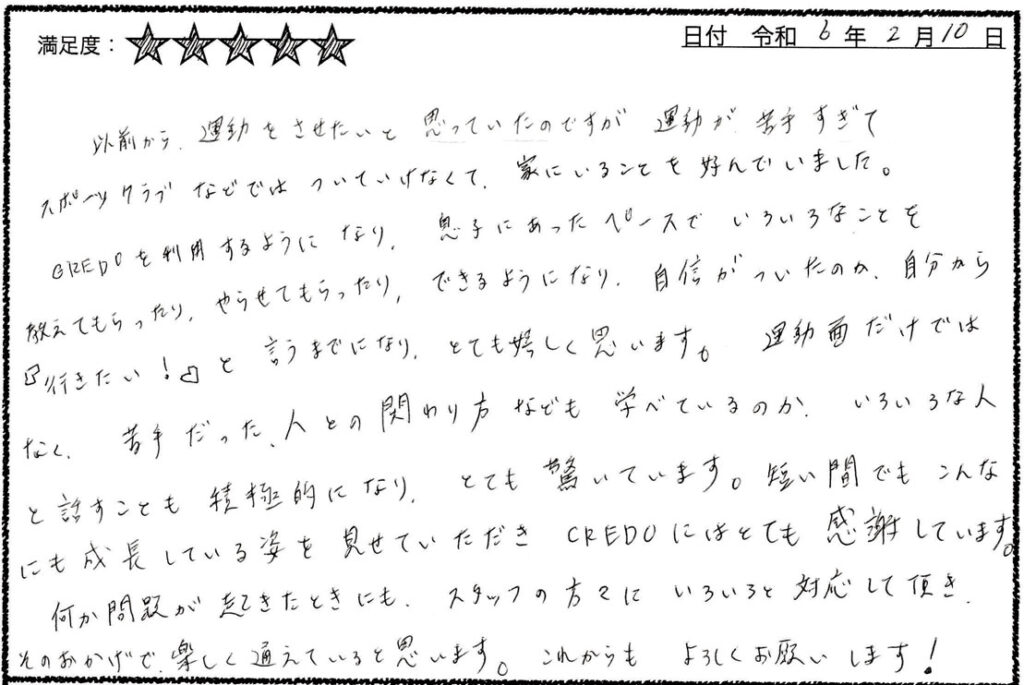 満足度：★★★★★
日付 令和 6 年 2 月 10 日
以前から、運動をさせたいと思っていたのですが運動が苦手すぎて
スポーツクラブなどではついていけなくて、家にいることを好んでいました。
CREDOを利用するようになり、息子にあったペースでいろいろなことを
教えてもらったり、やらせてもらったり、できるようになり、自信がついたのか、自分から
『行きたい！』と言うまでになり、とても嬉しく思います。運動面だけでは
なく、苦手だった、人との関わり方なども学べているのか、いろいろな人
と話すことも積極的になり、とても驚いています。短い間でもこんな
にも成長している姿を見せていただきCREDOにはとても感謝しています。
何か問題が起きたときにも、スタッフの方々にいろいろと対応して頂き、
そのおかげで、楽しく通えていると思います。これからもよろしくお願いします！